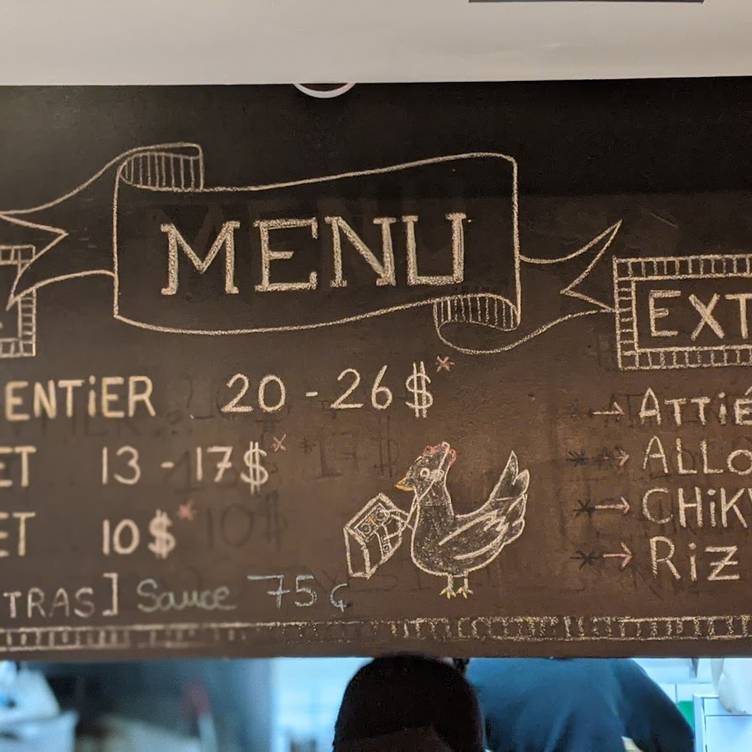 MENU
ENTiER 20 - 26$*
ET 13 - 17$*
ET 10$*
TRAS] Sauce 75¢
EXT
→ ATTiE
*→ ALLO
*→ CHiK
*→ RiZ